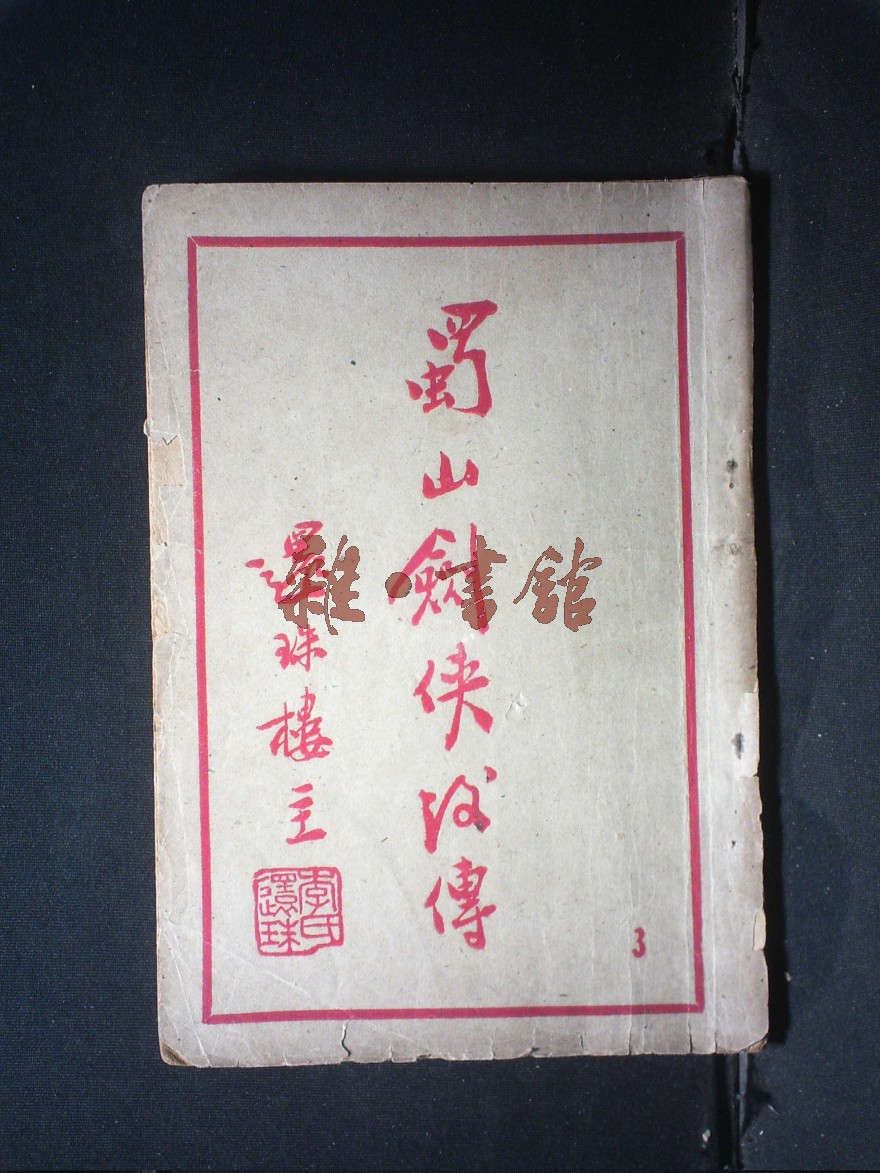 蜀山劍俠後傳
還珠樓主
李氏還珠
3
雜·書館